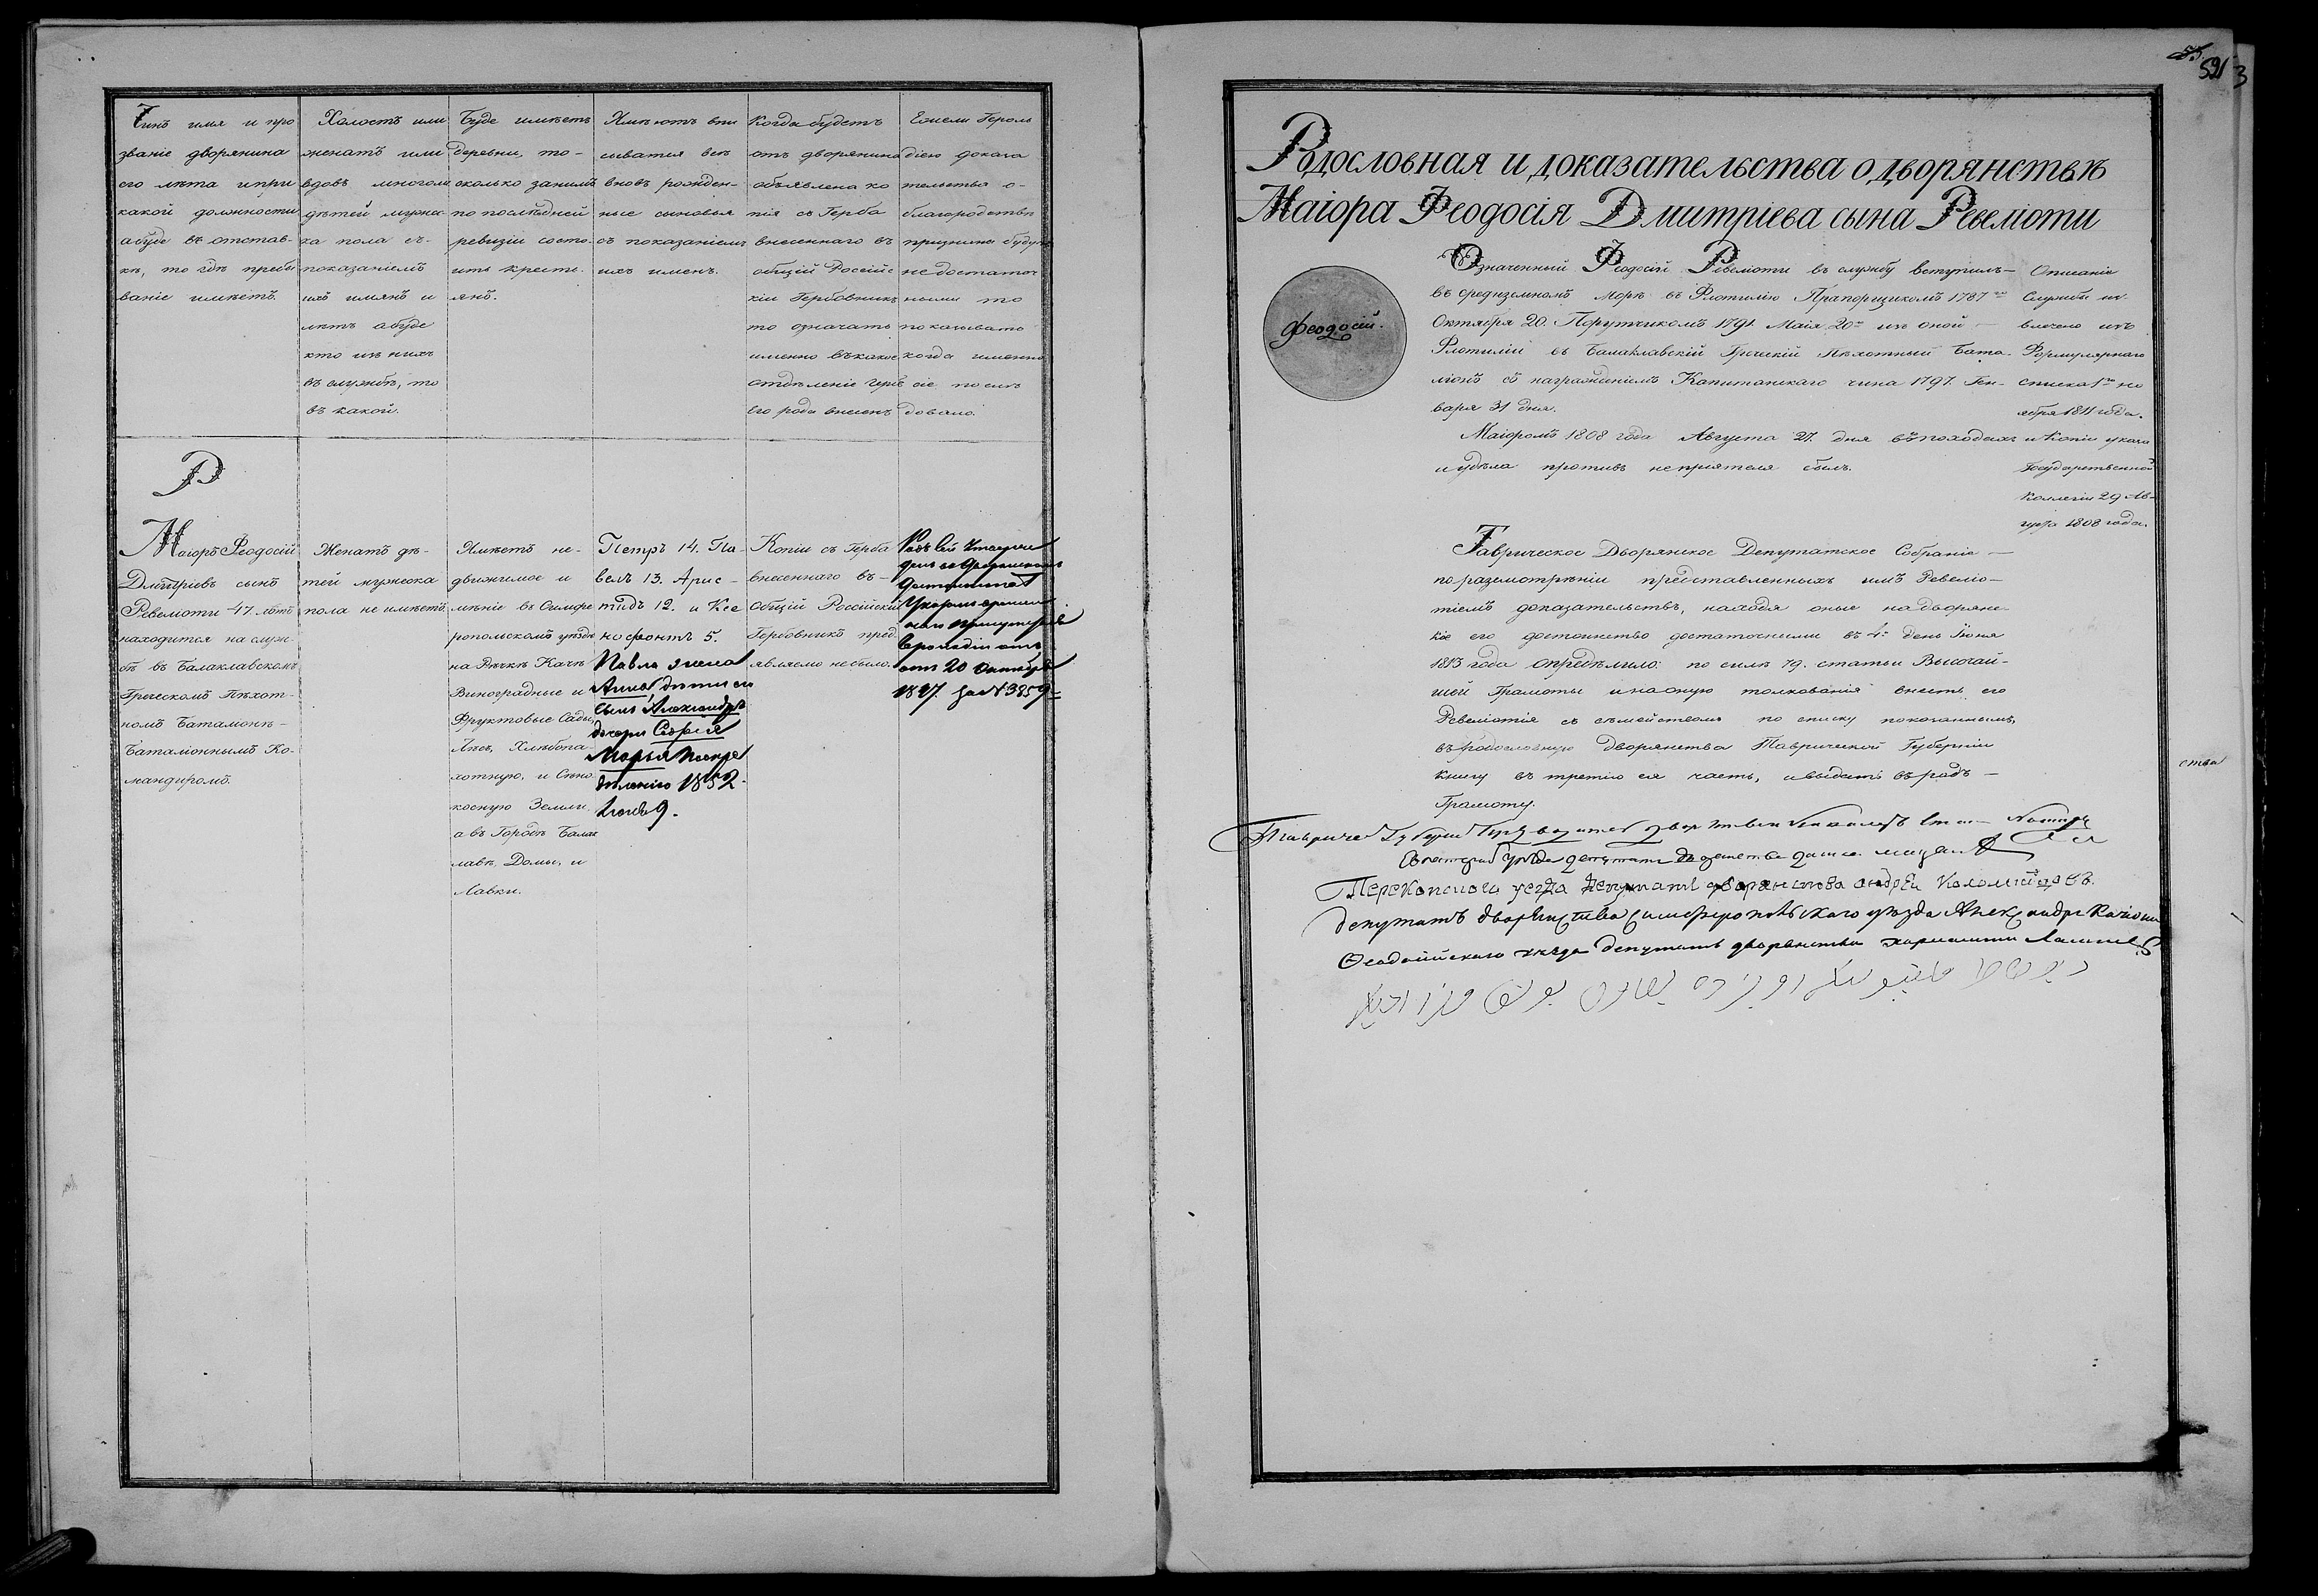 Чинъ имя и про
званіе дворянина
его лѣта и при
какой должности
а буде въ отстав-
кѣ, то гдѣ пребы
ваніе имѣетъ.
Холостъ или
женатъ или
вдовъ многоли
дѣтей мужес-
ка пола съ-
показаніемъ
ихъ имянъ и
лѣтъ а буде
кто изъ нихъ
въ службѣ, то
въ какой.
Буде имѣетъ
деревни, то-
сколько за нимъ
по послѣдней
ревизіи состо-
итъ кресть-
янъ.
Имѣютъ впи
сыватся всѣ
вновь рожден-
ные сыновья
съ показаніемъ
ихъ именъ.
Когда будетъ
отъ дворянина
объявлена ко
пія съ Герба
внесеннаго въ
общій Россійс
кій Гербовникъ
то означать
именно въ какое
отдѣленіе гербъ
его рода внесенъ
Ежели Героль
діею доказа
тельства о-
благородствѣ
признаны будутъ
недостаточ
ными то
показывать
когда именно
сіе послѣ
довало.
Р
Маіоръ Феодосій
Дмитріевъ сынъ
Ревеліоти 47. лѣтъ
находится на служ-
бѣ въ Балаклавскомъ
Греческомъ Пѣхот-
номъ Баталіонѣ-
Баталіоннымъ Ко-
мандиромъ.
Женатъ дѣ-
тей мужеска
пола не имѣетъ.
Имѣетъ не-
движимое и
мѣніе въ Симфе
ропольскомъ уѣздѣ
на Рѣчкѣ Качѣ
Виноградные и
Фруктовые Сады,
Лѣсъ, Хлѣбопа-
хотную, и Сѣно
косную Земли.
а въ Городѣ Балак
лавѣ, Домы, и
Лавки.
Петръ 14. Па-
велъ 13. Арис-
тидъ 12. и Ксе
нофонтъ 5.
Павла жена
Анна, дѣти ихъ
сынъ Александръ
дочери Софія
Марья по опре
дѣленію 1852.
Іюня 9.
Копіи съ Герба
внесеннаго въ-
Общій Россійскій
Гербовникъ пред
являемо небыло.
Родъ сей утверж
денъ въ дворянскомъ
достоинствѣ
Указомъ времен
наго присутствія
Герольдіи отъ
20 Октября
1847. за № 3859.
Родословная и доказательства о дворянствѣ
Маіора Феодосія Дмитріева сына Ревеліоти
Феодосій.
Означенный Феодосій Ревеліоти въ службу вступилъ-
въ средиземномъ морѣ въ Флотилію Прапорщикомъ 1787го
Октября 20. Порутчикомъ 1791. Маія 20го изъ оной-
Флотиліи въ Балаклавскій Греческій Пѣхотный Бата-
ліонъ съ награжденіемъ Капитанскаго чина 1797. Ген-
варя 31 дня.
Маіоромъ 1808 года Августа 27. дня въ походахъ
и у дѣла противъ непріятеля былъ.
Описаніе
Службы из-
влечено изъ
Формулярнаго
списка 1го но
ября 1811 года.
и Копіи указа
Государственной
Коллегіи 29 Ав-
густа 1808 года.
Таврическое Дворянское Депутатское Собраніе-
по разсмотрѣніи представленныхъ имъ Ревеліо-
тіемъ доказательствъ, находя оные на дворянс-
кое его достоинство достаточными въ 4й день Іюня
1813 года опредѣлило: по силѣ 79. статьи Высочай-
шей Грамоты и на оную толкованія внесть его
Ревеліотія съ семействомъ по списку показаннымъ,
въ родословную дворянства Таврической Губерніи
книгу въ третію ея часть, и выдать въ родъ-
Грамоту.
Перекопскаго уезда депутатъ дворянства андрѣи Коломийцовъ.
депутатъ дворянства Симферопольскаго уѣзда Александръ
Феодосійскаго уѣзда депутатъ дворянства
ства